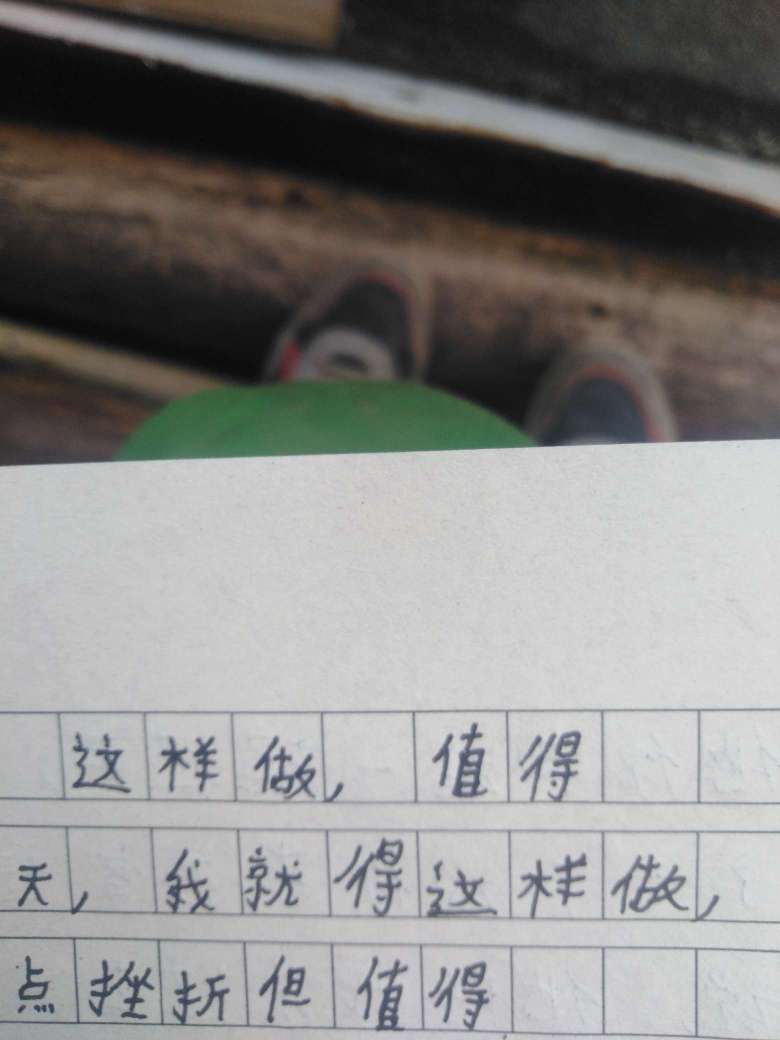 这样做，值得
天，我就得这样做，
点挫折但值得